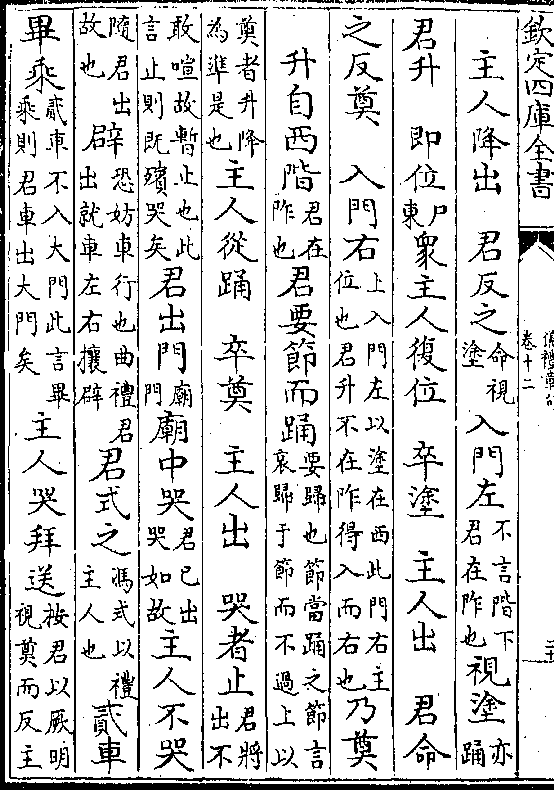 欽定四庫全書
儀禮章句
卷十二
主人降出 君反之命視塗入門左不言階下君在阼也視塗亦踊
君升 即位尸東衆主人復位 卒塗 主人出 君命
之反奠 入門右上入門左以塗在西此門右主位也君升不在阼得入而右也乃奠
升自西階君在阼也君要節而踊要歸也節當踊之節言哀歸于節而不過上以
奠者升降為準是也主人從踊 卒奠 主人出 哭者止君將出不
敢喧故暫止也此言止則既殯哭矣君出門廟門廟中哭君已出哭如故主人不哭
隨君出故也辟恐妨車行也曲禮君出就車左右攘辟君式之馮式以禮主人也貳車
畢乘貳車不入大門此言畢乘則君車出大門矣主人哭拜送按君以厥明視奠而反主